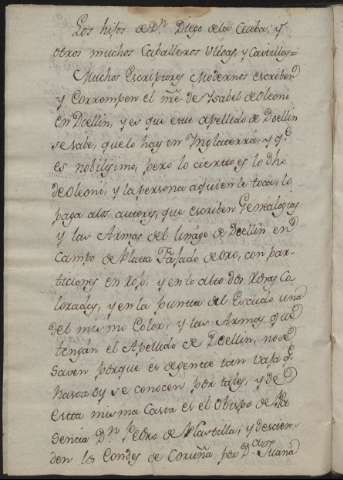 Los hijos de Dn. Diego de la Cueba; y
otros muchos Caballeros Ulloas, y Castillas=
Muchos Escriptores Modernos escriben
y corrompen el nre. de Isabel de Oleoni
en Dcellin, y es que este apellido de Dcellin
se sabe, que lo hay en Inglaterra, y q.e
es nobilisimo, pero lo cierto es lo dho
de Oleoni, y la persona a quien le toca, lo
paga a los autores, que escriben Genealogias
y las Armas del linage de Dcellin en
Campo de Plata Fajado de oro, con par-
ticiones en rojo, y en lo alto dos Rosas Co-
loradas, y en la punta del Escudo una
del mismo Color; y las Armas que
tengan el Apellido de Dcellin, no se
saven porque es de gente tan vaja q.e
hasta oy se conocen por tales, y de
esta misma Casta es el Obispo de
dencia Dn. Pedro de Castilla, y descien-
den los Condes de Coruña por Da. Juana